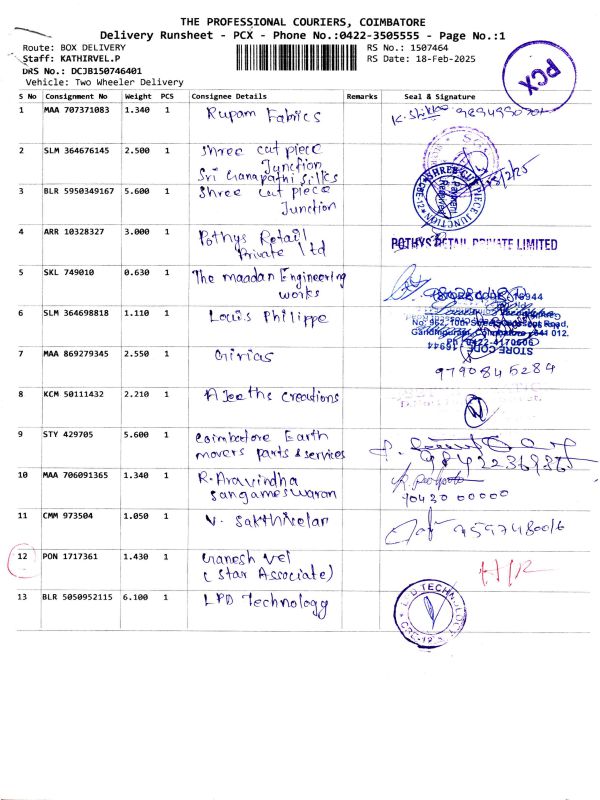 THE PROFESSIONAL COURIERS, COIMBATORE
Delivery Runsheet - PCX - Phone No.:0422-3505555 - Page No.:1
Route: BOX DELIVERY
RS No.: 1507464
Staff: KATHIRVEL.P
RS Date: 18-Feb-2025
DRS No.: DCJB150746401
Vehicle: Two Wheeler Delivery
PCX
S No Consignment No Weight PCS Consignee Details Remarks Seal & Signature
1 MAA 707371083 1.340 1 Rupam Fabrics
2 SLM 364676145 2.500 1 Shree cut piece
Junction
Sri Ganapathi Silks
3 BLR 5950349167 5.600 1 Shree cut piece
Junction
SHREE CUT PIECE JUNCTION
4 ARR 10328327 3.000 1 Pothys Retail
Private Ltd
POTHYS RETAIL PRIVATE LIMITED
5 SKL 749010 0.630 1 The maadan Engineering
works
6 SLM 364698818 1.110 1 Louis Philippe
STORE CODE: 16944
7 MAA 869279345 2.550 1 Girias
9790845284
8 KCM 50111432 2.210 1 AJeeths Creations
9 STY 429705 5.600 1 Coimbatore Earth
movers parts & services
10 MAA 706091365 1.340 1 R. Aravindha
Sangameswaran
11 CMM 973504 1.050 1 V. Sakthivelan
12 PON 1717361 1.430 1 Ganesh Vel
(Star Associate)
13 BLR 5050952115 6.100 1 LPD Technology
LPD TECHNOLOGY